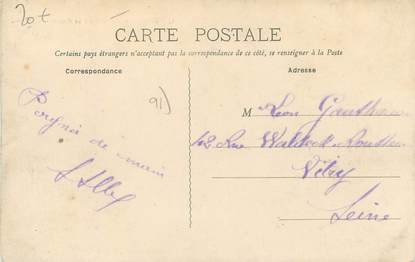 20 t
CARTE POSTALE
Certains pays étrangers n'acceptent pas la correspondance de ce côté, se renseigner à la Poste
Correspondance
Adresse
91)
Poignée de main
M Léon
42 Rue Waldeck-Rousseau
Vitry
Seine